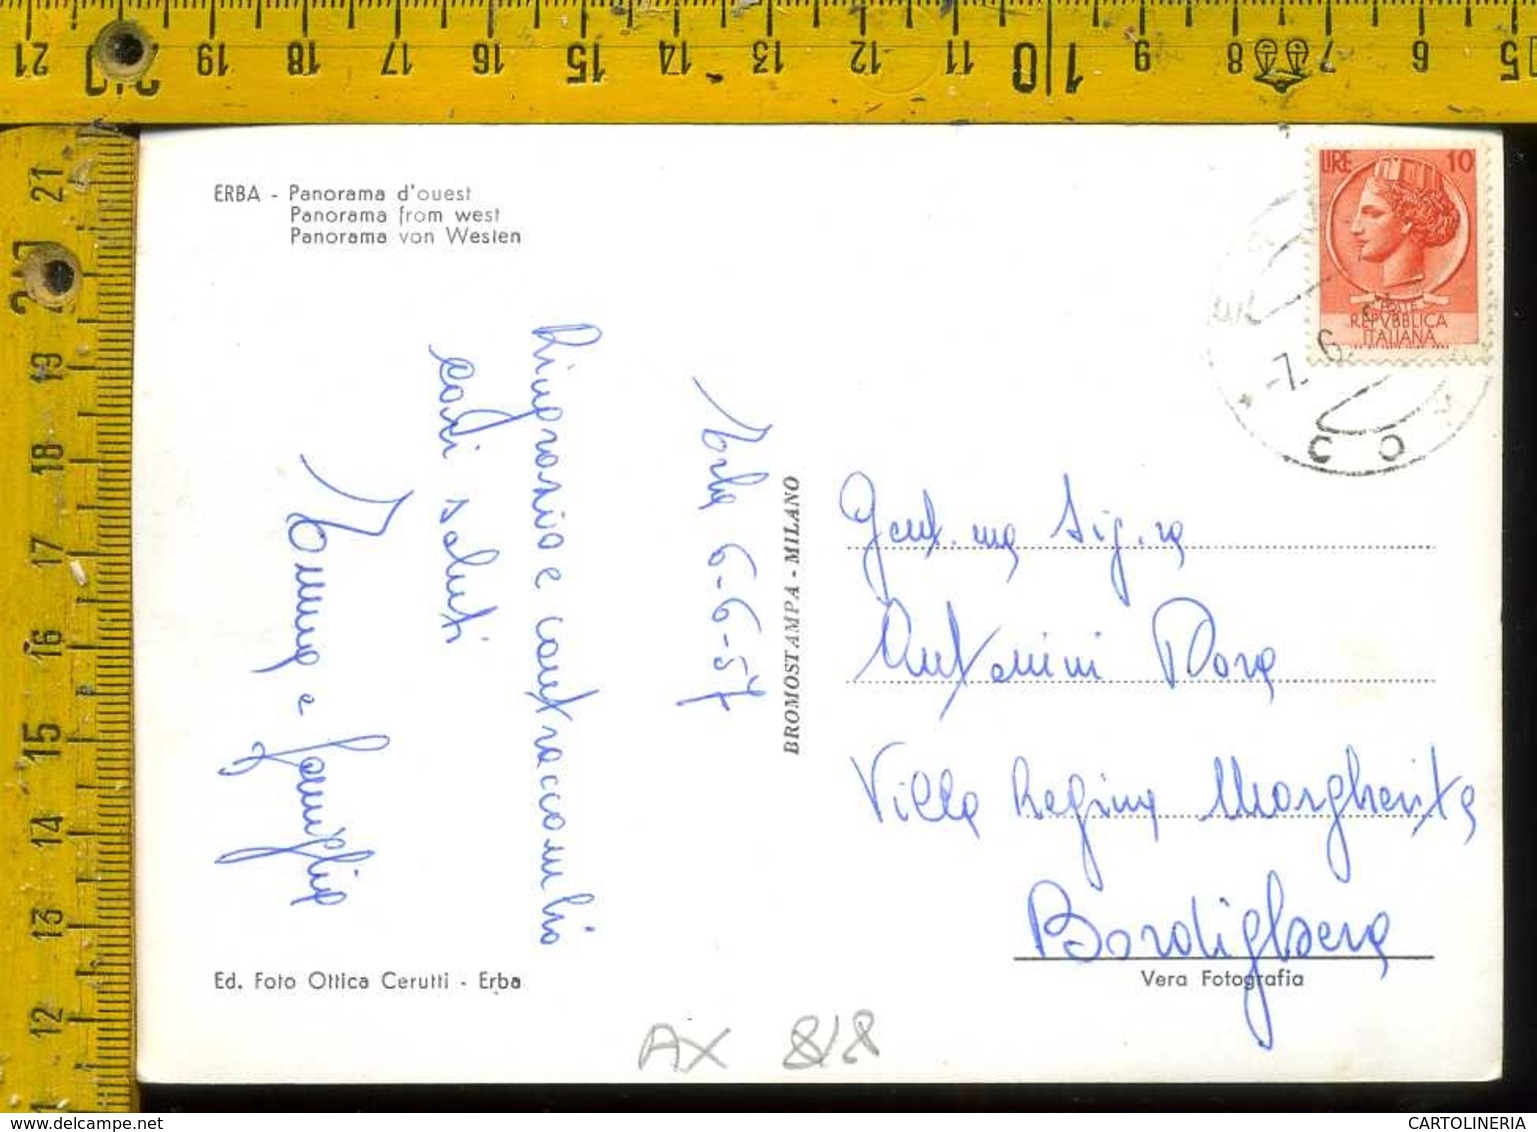 21 20 19 18 17 16 15 14 13 12 11 10 9 8 7 6 5
21
20
19
18
17
16
15
14
13
12
ERBA - Panorama d'ouest
Panorama from west
Panorama von Westen
LIRE 10
POSTE
REPVBBLICA
ITALIANA
-7. 6.
CO
Erba 6-6-57
Ringrazio e contraccambio
cordi saluti
Emma e famiglia
BROMOSTAMPA - MILANO
Gent.ma Sig.ra
Antonini Dora
Villa Regina Margherita
Bordighera
Ed. Foto Ottica Cerutti - Erba
Vera Fotografia
AX 818
www.delcampe.net
CARTOLINERIA